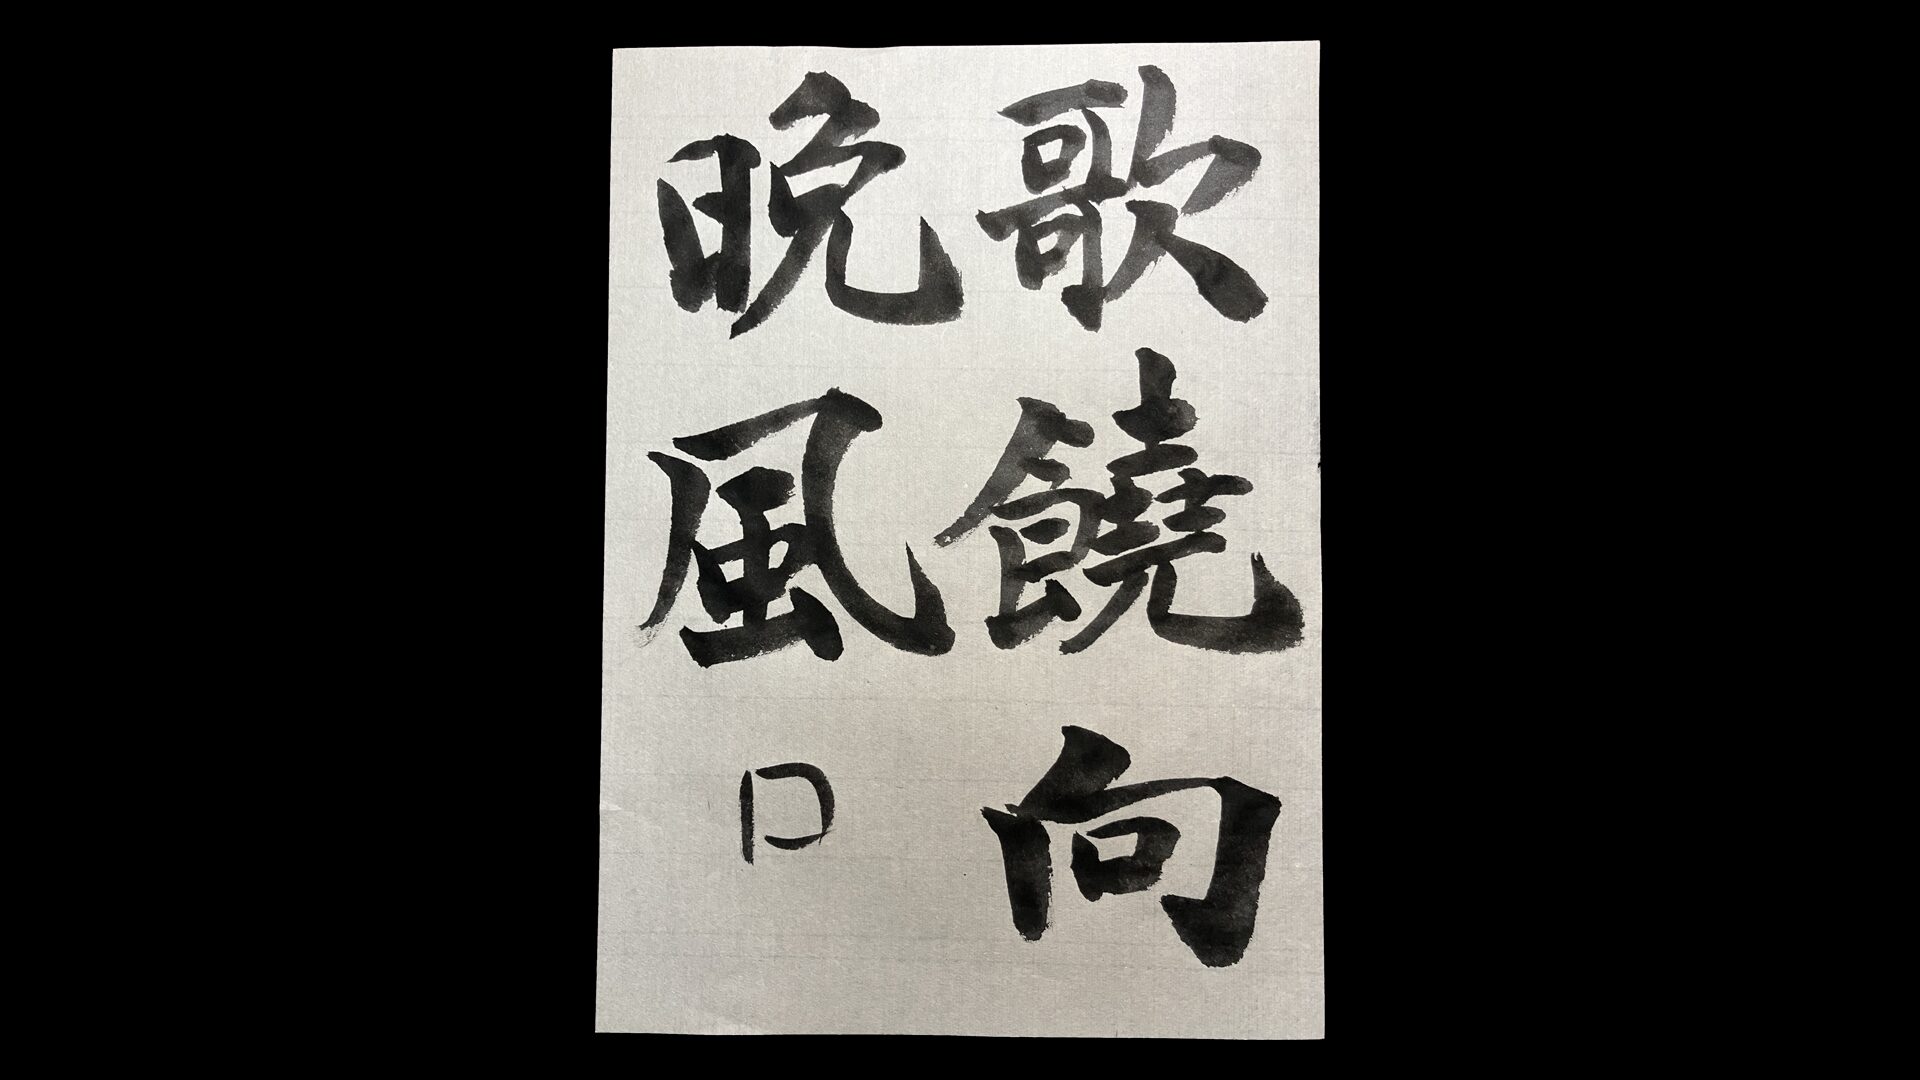 歌饒向
晩風口